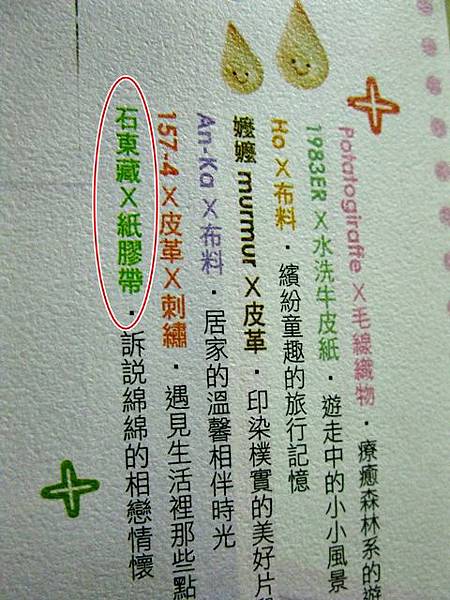 Potatogiraffe X毛線織物・療癒森林系的遊
1983ER X水洗牛皮紙・遊走中的小小風景
Ho X布料・繽紛童趣的旅行記憶
嬤嬤 murmur X皮革・印染樸實的美好片
An-Ka X布料・居家的溫馨相伴時光
157-4 X皮革X刺繡・遇見生活裡那些點
石東藏X紙膠帶・訴說綿綿的相戀情懷